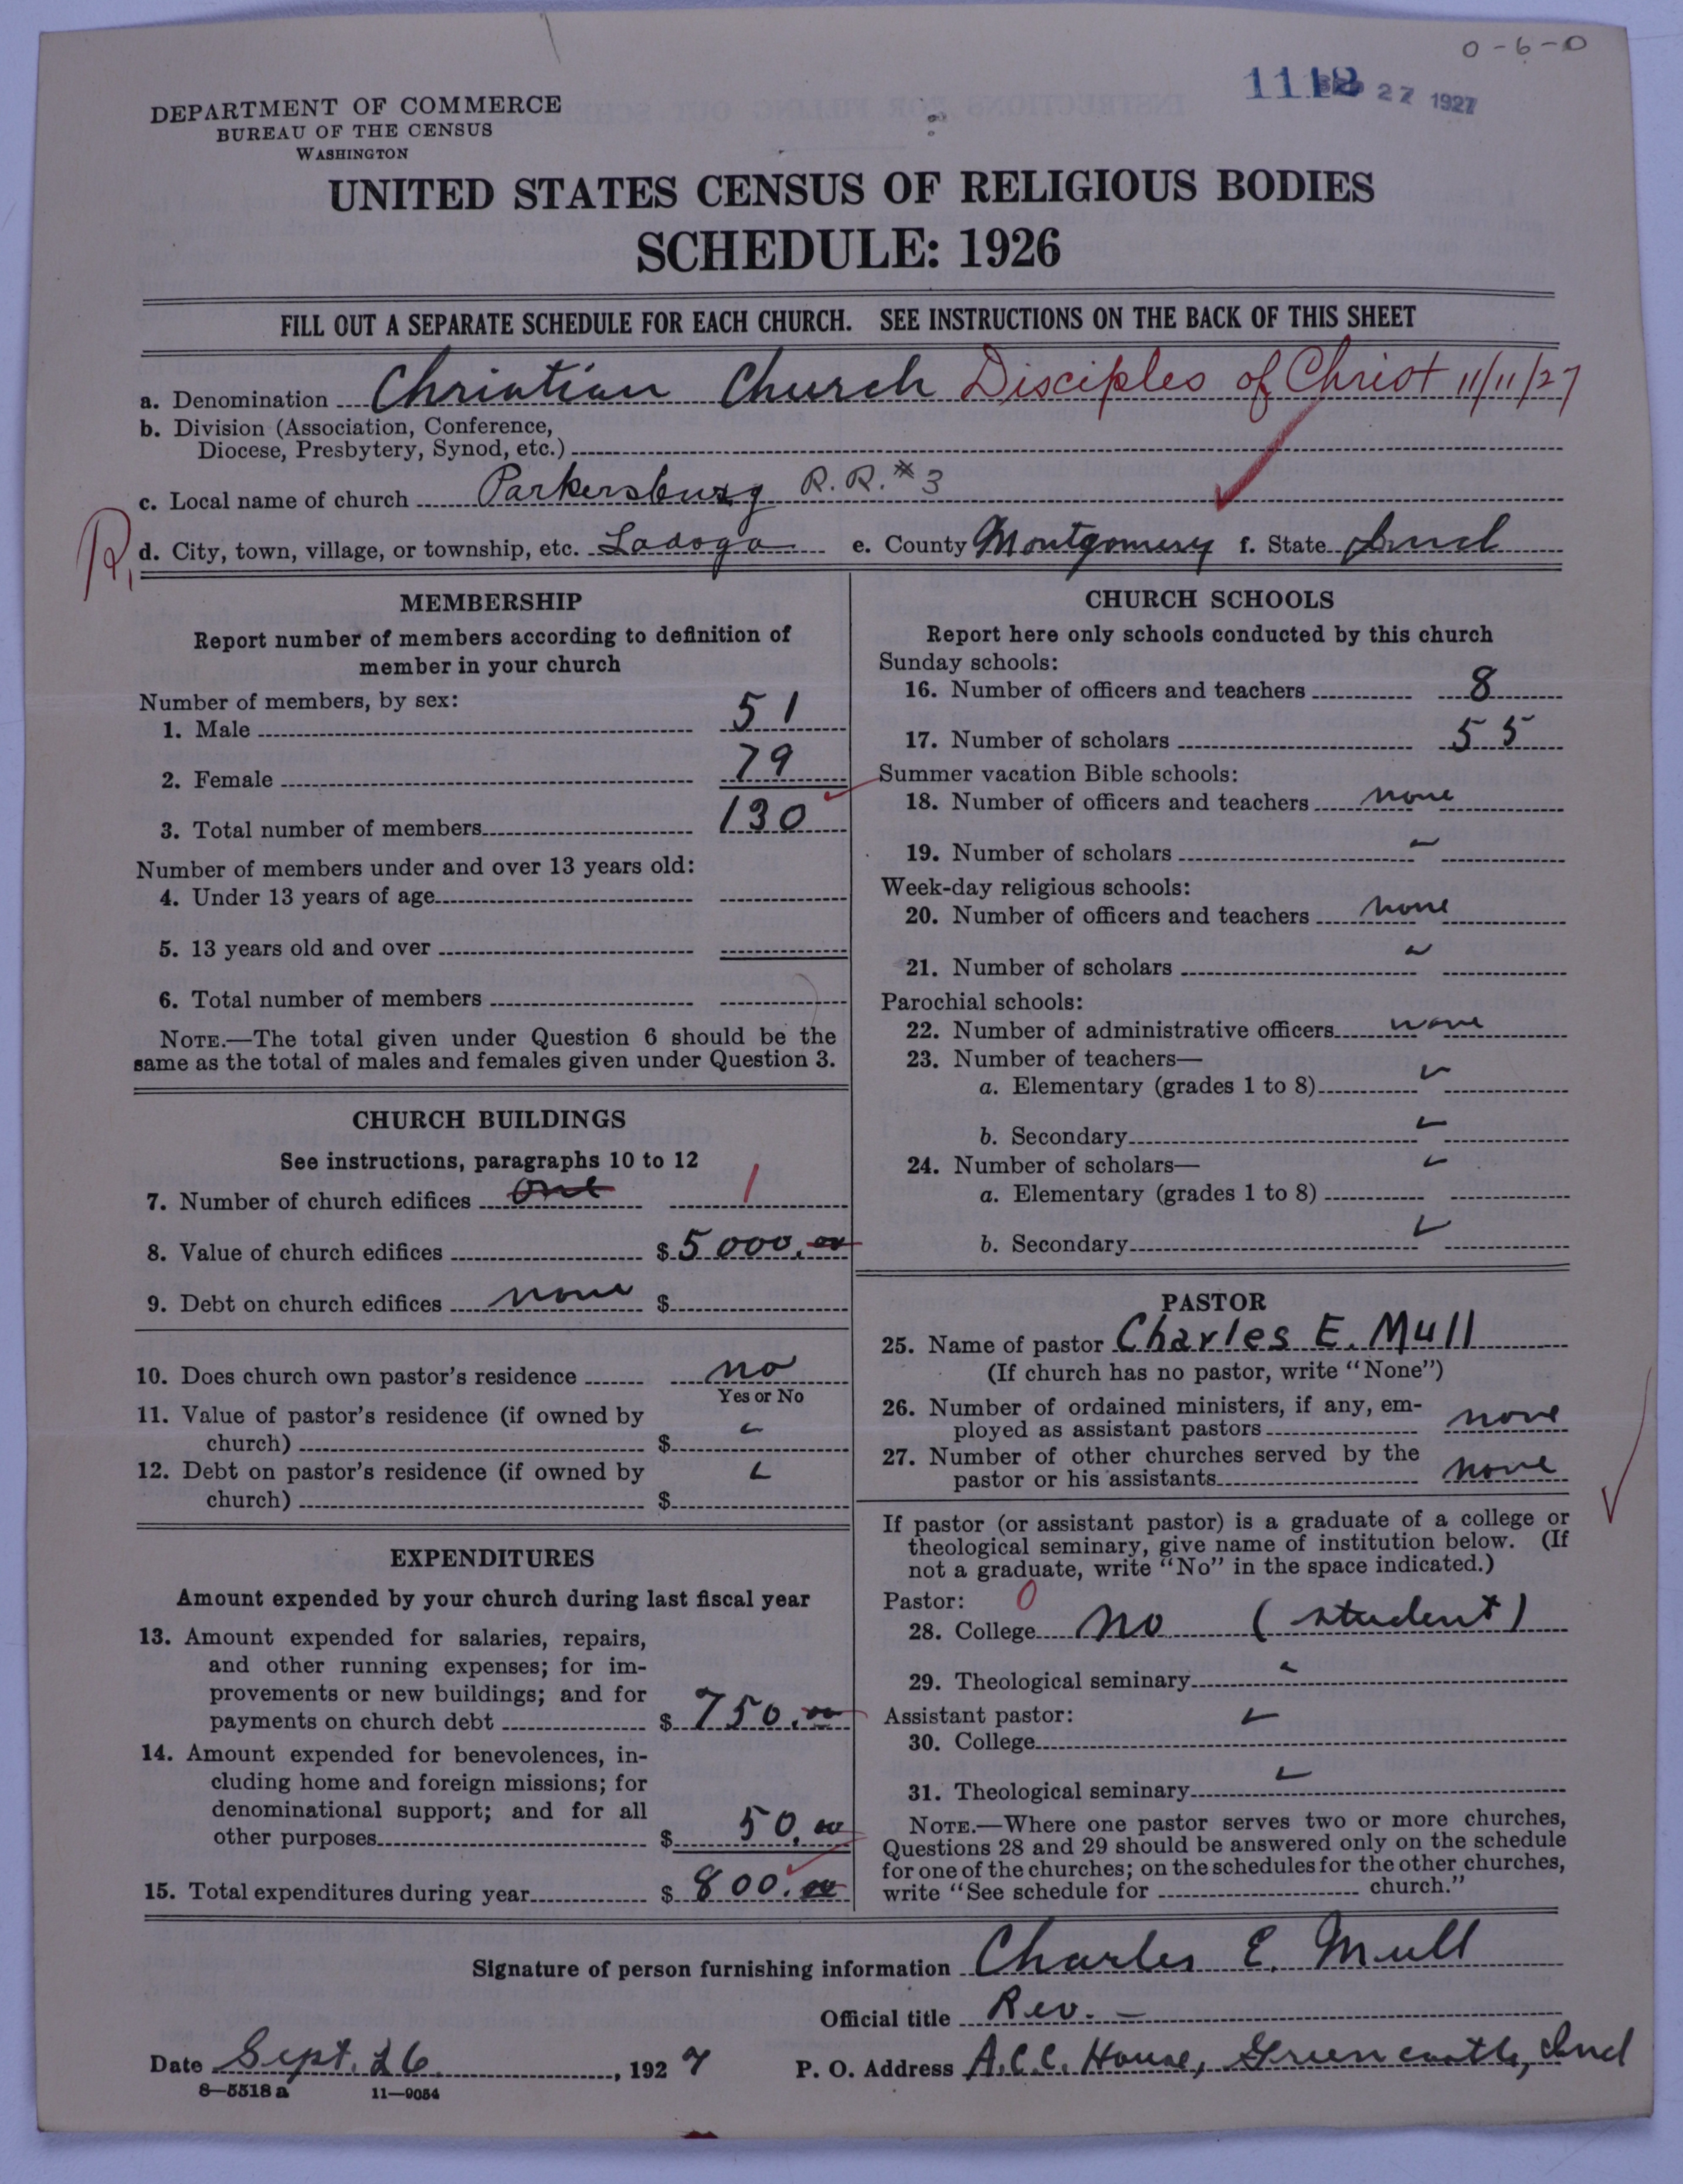 0-6-0
1112 27 1927
DEPARTMENT OF COMMERCE
BUREAU OF THE CENSUS
WASHINGTON
UNITED STATES CENSUS OF RELIGIOUS BODIES
SCHEDULE: 1926
FILL OUT A SEPARATE SCHEDULE FOR EACH CHURCH. SEE INSTRUCTIONS ON THE BACK OF THIS SHEET
a. Denomination Christian Church Disciples of Christ 11/11/27
b. Division (Association, Conference,
Diocese, Presbytery, Synod, etc.)
c. Local name of church Parkersburg R.R.#3
R. d. City, town, village, or township, etc. Ladoga e. County Montgomery f. State Ind
MEMBERSHIP
Report number of members according to definition of
member in your church
Number of members, by sex:
1. Male 51
2. Female 79
3. Total number of members 130
Number of members under and over 13 years old:
4. Under 13 years of age
5. 13 years old and over
6. Total number of members
NOTE.—The total given under Question 6 should be the
same as the total of males and females given under Question 3.
CHURCH BUILDINGS
See instructions, paragraphs 10 to 12
7. Number of church edifices one 1
8. Value of church edifices $ 5000.00
9. Debt on church edifices none $
10. Does church own pastor's residence no
Yes or No
11. Value of pastor's residence (if owned by
church) $
12. Debt on pastor's residence (if owned by
church) $
EXPENDITURES
Amount expended by your church during last fiscal year
13. Amount expended for salaries, repairs,
and other running expenses; for im-
provements or new buildings; and for
payments on church debt $ 750.00
14. Amount expended for benevolences, in-
cluding home and foreign missions; for
denominational support; and for all
other purposes $ 50.00
15. Total expenditures during year $ 800.00
CHURCH SCHOOLS
Report here only schools conducted by this church
Sunday schools:
16. Number of officers and teachers 8
17. Number of scholars 55
Summer vacation Bible schools:
18. Number of officers and teachers none
19. Number of scholars
Week-day religious schools:
20. Number of officers and teachers none
21. Number of scholars
Parochial schools:
22. Number of administrative officers none
23. Number of teachers—
a. Elementary (grades 1 to 8)
b. Secondary
24. Number of scholars—
a. Elementary (grades 1 to 8)
b. Secondary
PASTOR
25. Name of pastor Charles E. Mull
(If church has no pastor, write "None")
26. Number of ordained ministers, if any, em-
ployed as assistant pastors none
27. Number of other churches served by the
pastor or his assistants none
If pastor (or assistant pastor) is a graduate of a college or
theological seminary, give name of institution below. (If
not a graduate, write "No" in the space indicated.)
Pastor: 0
28. College no (student)
29. Theological seminary
Assistant pastor:
30. College
31. Theological seminary
NOTE.—Where one pastor serves two or more churches,
Questions 28 and 29 should be answered only on the schedule
for one of the churches; on the schedules for the other churches,
write "See schedule for church."
Signature of person furnishing information Charles E. Mull
Official title Rev.
Date Sept. 26, 1927 P. O. Address A.C.C. House, Greencastle, Ind
8—5518 a 11—9054